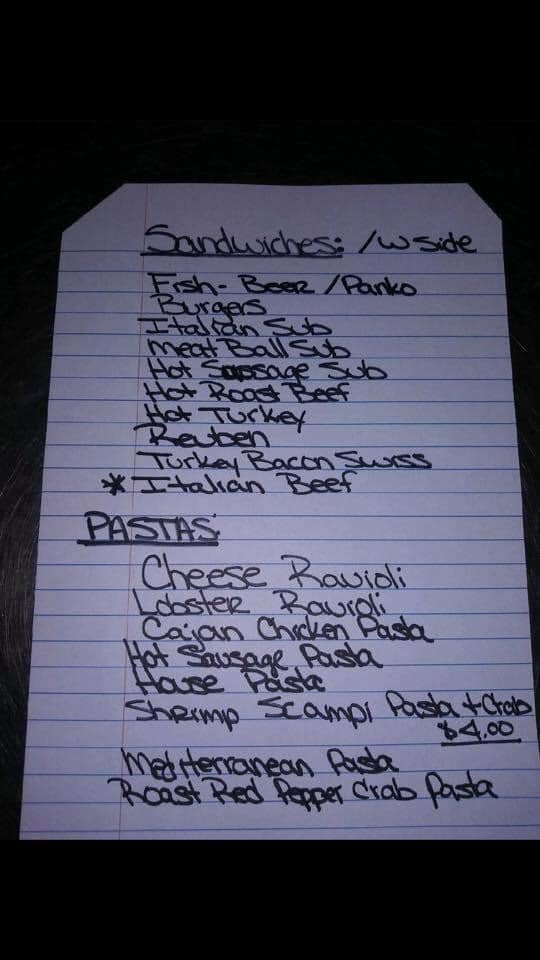 Sandwiches: /w side
Fish - Beer / Panko
Burgers
Italian Sub
Meat Ball Sub
Hot Sausage Sub
Hot Roast Beef
Hot Turkey
Reuben
Turkey Bacon Swiss
* Italian Beef
PASTAS
Cheese Ravioli
Lobster Ravioli
Cajan Chicken Pasta
Hot Sausage Pasta
House Pasta
Shrimp Scampi Pasta + Crab
$4.00
Mediterranean Pasta
Roast Red Pepper Crab Pasta